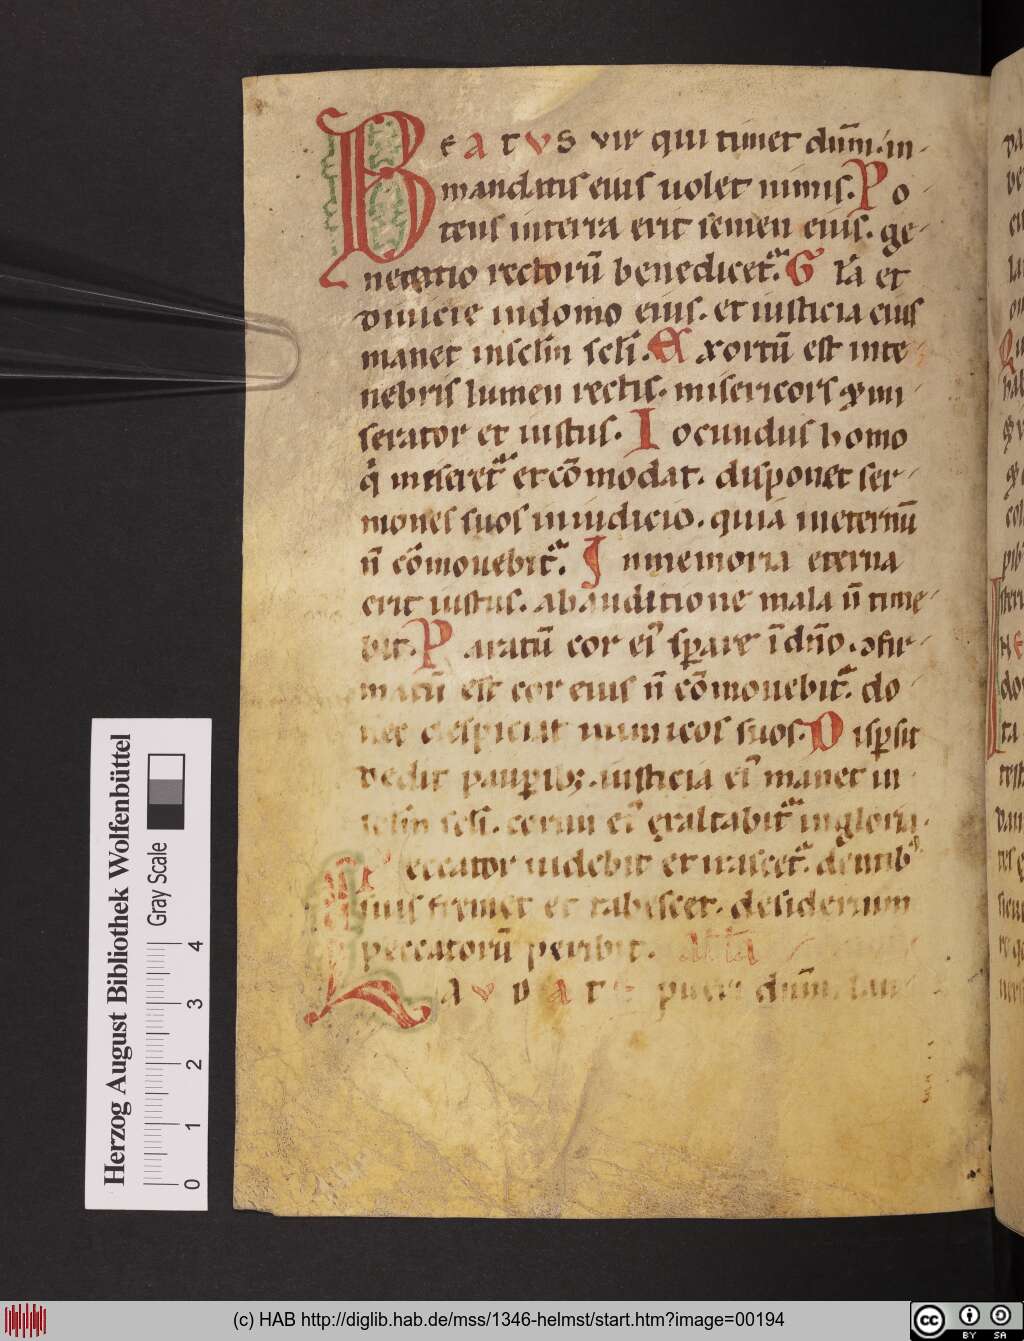 BEATVS vir qui timet dūm. in
mandatis eius uolet nimis. Po
tens interra erit semen eius. ge
neratio rectorū benedicet᷑. Gl̄a et
diuicie indomo eius. et iusticia eius
manet insclm̄ scl̄i. Exortū est inte
nebris lumen rectis. misericors &mi
serator et iustus. Iocundus homo
q̇ miseret᷑ et cōmodat. disponet ser
mones suos iniudicio. quia ineternū
n̄ cōmouebit᷑. Inmemoria eterna
erit iustus. abauditione mala n̄ time
bit. Paratū cor ei᷒ sꝑare īdn̄o. ɔfir
matū est cor eius n̄ cōmouebit᷑. do
nec despiciat inimicos suos. Disꝑsit
dedit pauꝑib; iusticia ei᷒ manet in
sclm̄ scl̄i. cornu ei᷒ exaltabit᷑ inglori
Peccator uidebit et irascet᷑. dentib᷒
suis fremet et tabescet. desiderium
peccatorū peribit.
LAVDATE pueri dn̄m. lau
Herzog August Bibliothek Wolfenbüttel
Gray Scale
0 1 2 3 4
(c) HAB http://diglib.hab.de/mss/1346-helmst/start.htm?image=00194
cc BY SA